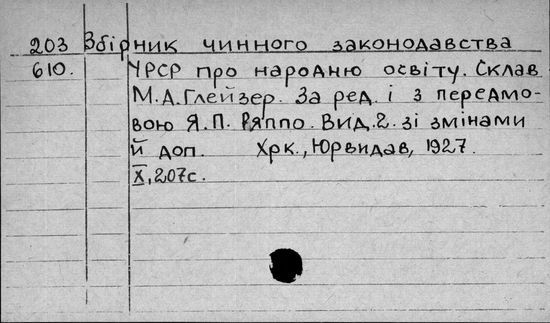 203 Збірник чинного законодавства
610. УРСР про народню освіту. Склав
М.Д.Глейзер. За ред. і з передмо-
вою Я.П. Ряппо. Вид.2. зі змінами
й доп. Хрк., Юрвидав, 1927.
X, 207с.